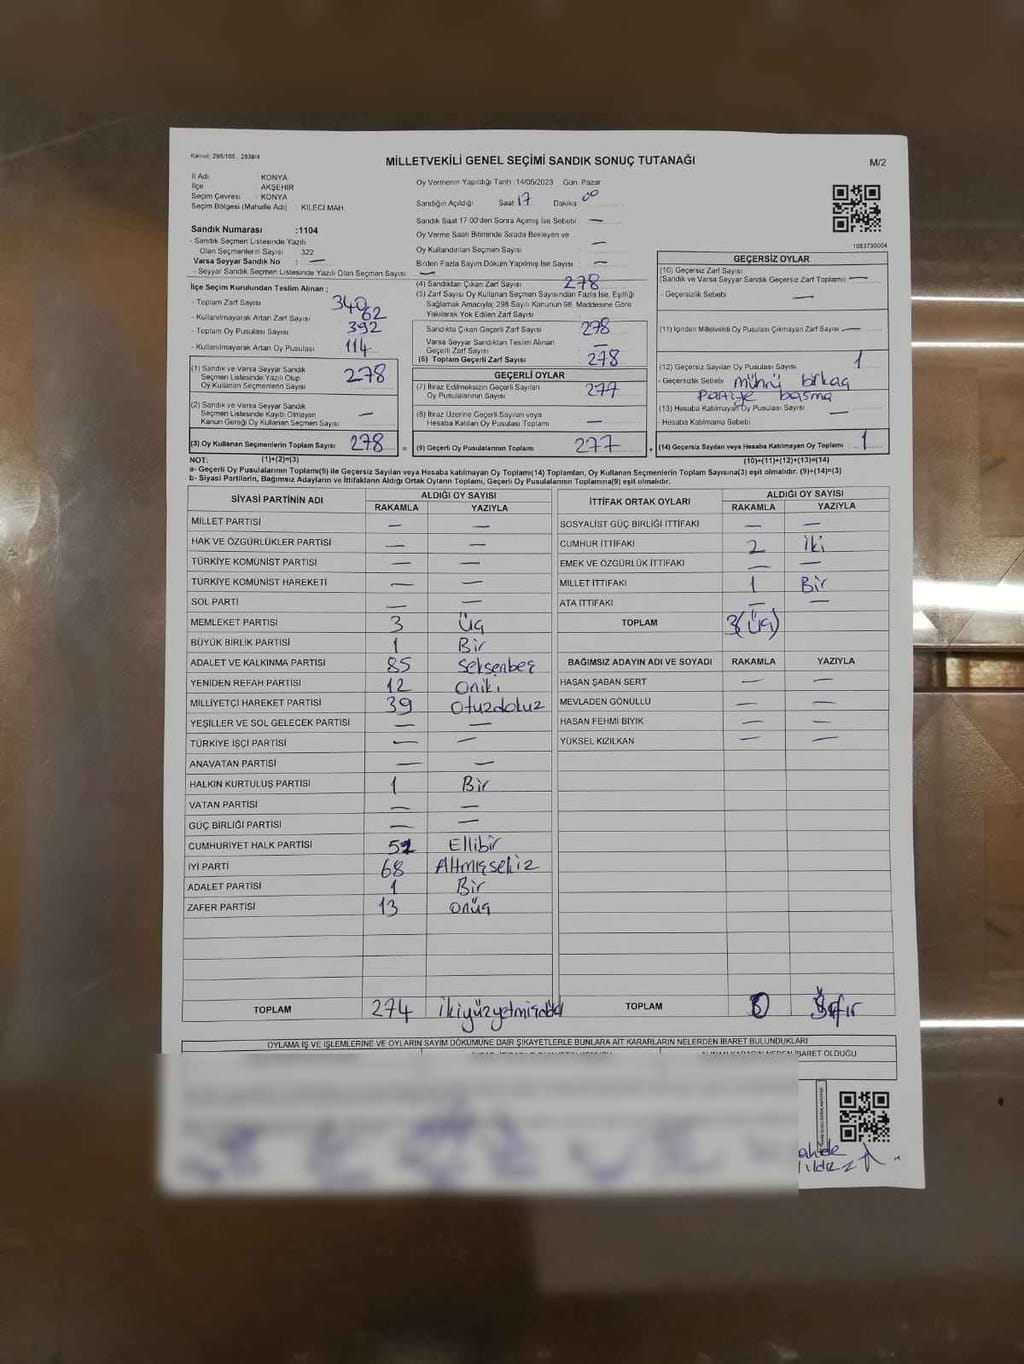 Kanun: 298/105, 2839/4
MİLLETVEKİLİ GENEL SEÇİMİ SANDIK SONUÇ TUTANAĞI
M/2
İl Adı KONYA
İlçe AKŞEHİR
Seçim Çevresi KONYA
Seçim Bölgesi (Mahalle Adı) : KİLECİ MAH.
Oy Vermenin Yapıldığı Tarih :14/05/2023 Gün: Pazar
Sandığın Açıldığı Saat 17 Dakika 00
Sandık Saat 17:00'den Sonra Açılmış İse Sebebi —
Oy Verme Saati Bitiminde Sırada Bekleyen ve
Oy Kullandırılan Seçmen Sayısı —
Birden Fazla Sayım Döküm Yapılmış İse Sayısı —
1083730004
Sandık Numarası :1104
- Sandık Seçmen Listesinde Yazılı
Olan Seçmenlerin Sayısı 322
Varsa Seyyar Sandık No : —
- Seyyar Sandık Seçmen Listesinde Yazılı Olan Seçmen Sayısı —
İlçe Seçim Kurulundan Teslim Alınan ;
- Toplam Zarf Sayısı 340
- Kullanılmayarak Artan Zarf Sayısı 62
- Toplam Oy Pusulası Sayısı 392
- Kullanılmayarak Artan Oy Pusulası 114
(1) Sandık ve Varsa Seyyar Sandık
Seçmen Listesinde Yazılı Olup
Oy Kullanan Seçmenlerin Sayısı 278
(2) Sandık ve Varsa Seyyar Sandık
Seçmen Listesinde Kayıtlı Olmayan
Kanun Gereği Oy Kullanan Seçmen Sayısı —
(3) Oy Kullanan Seçmenlerin Toplam Sayısı 278 =
(4) Sandıktan Çıkan Zarf Sayısı 278
(5) Zarf Sayısı Oy Kullanan Seçmen Sayısından Fazla İse, Eşitliği
Sağlamak Amacıyla; 298 Sayılı Kanunun 98. Maddesine Göre
Yakılarak Yok Edilen Zarf Sayısı —
Sandıkta Çıkan Geçerli Zarf Sayısı 278
Varsa Seyyar Sandıktan Teslim Alınan
Geçerli Zarf Sayısı —
(6) Toplam Geçerli Zarf Sayısı 278
GEÇERLİ OYLAR
(7) İtiraz Edilmeksizin Geçerli Sayılan
Oy Pusulalarının Sayısı 277
(8) İtiraz Üzerine Geçerli Sayılan veya
Hesaba Katılan Oy Pusulası Toplamı —
(9) Geçerli Oy Pusulalarının Toplamı 277 +
GEÇERSİZ OYLAR
(10) Geçersiz Zarf Sayısı
(Sandık ve Varsa Seyyar Sandık Geçersiz Zarf Toplamı) —
- Geçersizlik Sebebi —
(11) İçinden Milletvekili Oy Pusulası Çıkmayan Zarf Sayısı —
(12) Geçersiz Sayılan Oy Pusulası Sayısı 1
- Geçersizlik Sebebi mühnü birkaç
Partiye basma
(13) Hesaba Katılmayan Oy Pusulası Sayısı —
- Hesaba Katılmama Sebebi —
(14) Geçersiz Sayılan veya Hesaba Katılmayan Oy Toplamı 1
NOT: (1)+(2)=(3) (10)+(11)+(12)+(13)=(14)
a- Geçerli Oy Pusulalarının Toplamı(9) ile Geçersiz Sayılan veya Hesaba katılmayan Oy Toplamı(14) Toplamları, Oy Kullanan Seçmenlerin Toplam Sayısına(3) eşit olmalıdır. (9)+(14)=(3)
b- Siyasi Partilerin, Bağımsız Adayların ve İttifakların Aldığı Ortak Oyların Toplamı, Geçerli Oy Pusulalarının Toplamına(9) eşit olmalıdır.
SİYASİ PARTİNİN ADI ALDIĞI OY SAYISI
RAKAMLA YAZIYLA
MİLLET PARTİSİ — —
HAK VE ÖZGÜRLÜKLER PARTİSİ — —
TÜRKİYE KOMÜNİST PARTİSİ — —
TÜRKİYE KOMÜNİST HAREKETİ — —
SOL PARTİ — —
MEMLEKET PARTİSİ 3 Üç
BÜYÜK BİRLİK PARTİSİ 1 Bir
ADALET VE KALKINMA PARTİSİ 85 Seksenbeş
YENİDEN REFAH PARTİSİ 12 Oniki
MİLLİYETÇİ HAREKET PARTİSİ 39 Otuzdokuz
YEŞİLLER VE SOL GELECEK PARTİSİ — —
TÜRKİYE İŞÇİ PARTİSİ — —
ANAVATAN PARTİSİ — —
HALKIN KURTULUŞ PARTİSİ 1 Bir
VATAN PARTİSİ — —
GÜÇ BİRLİĞİ PARTİSİ — —
CUMHURİYET HALK PARTİSİ 51 Ellibir
İYİ PARTİ 68 Altmışsekiz
ADALET PARTİSİ 1 Bir
ZAFER PARTİSİ 13 onüç
TOPLAM 274 ikiyüzyetmişdört
İTTİFAK ORTAK OYLARI ALDIĞI OY SAYISI
RAKAMLA YAZIYLA
SOSYALİST GÜÇ BİRLİĞİ İTTİFAKI — —
CUMHUR İTTİFAKI 2 İki
EMEK VE ÖZGÜRLÜK İTTİFAKI — —
MİLLET İTTİFAKI 1 Bir
ATA İTTİFAKI — —
TOPLAM 3(Üç)
BAĞIMSIZ ADAYIN ADI VE SOYADI RAKAMLA YAZIYLA
HASAN ŞABAN SERT — —
MEVLADEN GÖNÜLLÜ — —
HASAN FEHMİ BIYIK — —
YÜKSEL KIZILKAN — —
TOPLAM 0 Sıfır
OYLAMA İŞ VE İŞLEMLERİNE VE OYLARIN SAYIM DÖKÜMÜNE DAİR ŞİKAYETLERLE BUNLARA AİT KARARLARIN NELERDEN İBARET BULUNDUKLARI
İBARET OLDUĞU